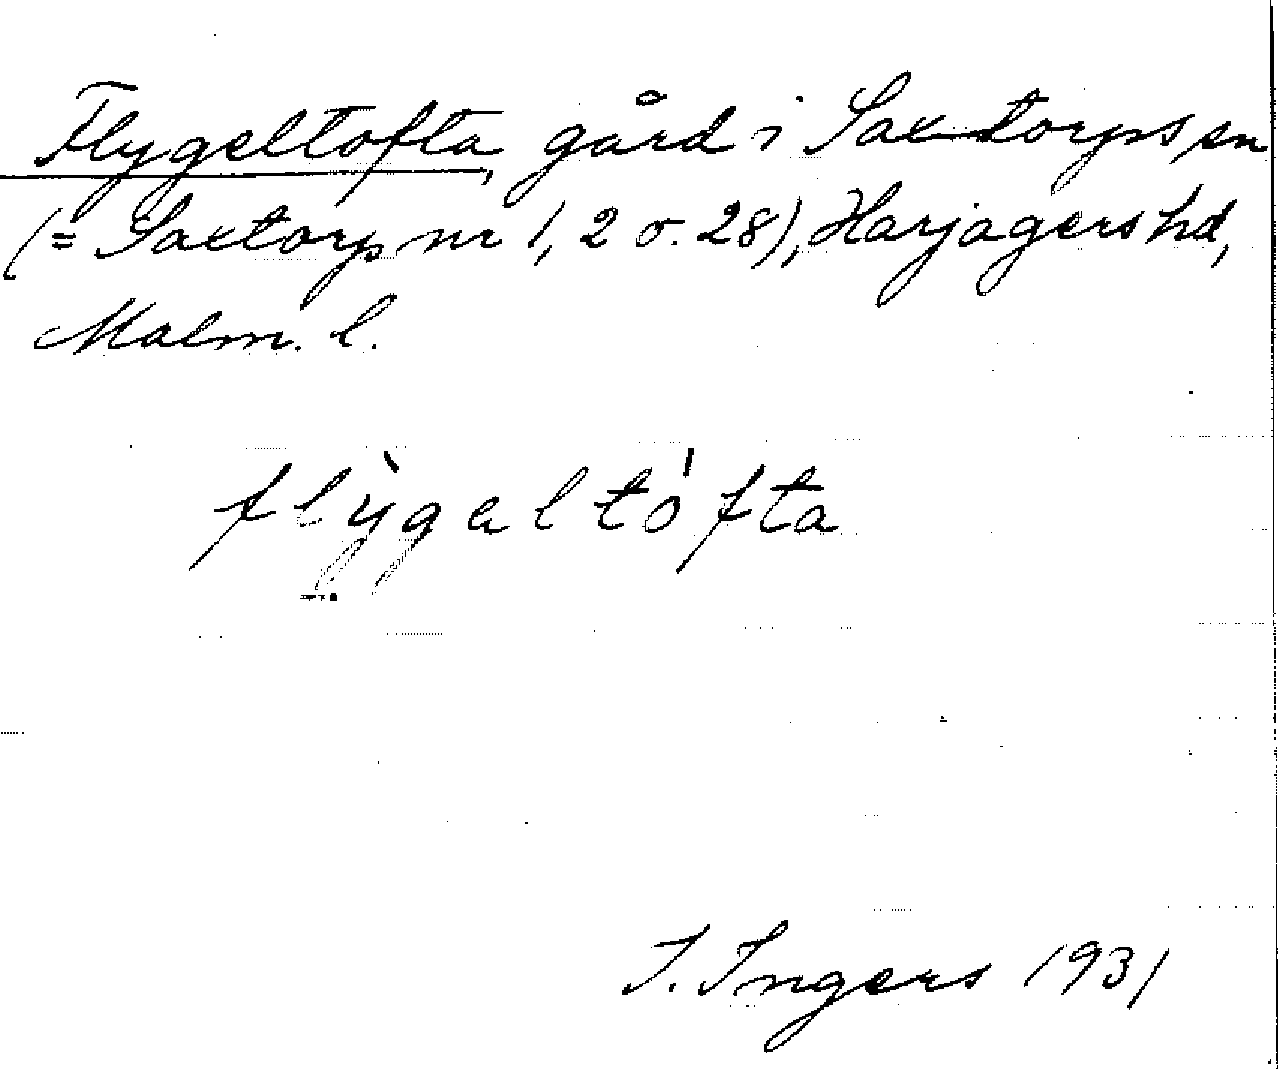 Flygeltofta, gård i Saxtorps sn
(= Saxtorp nr 1, 2 o. 28), Harjagers hd,
Malm. l.
flỳgaltófta
I. Ingers 1931